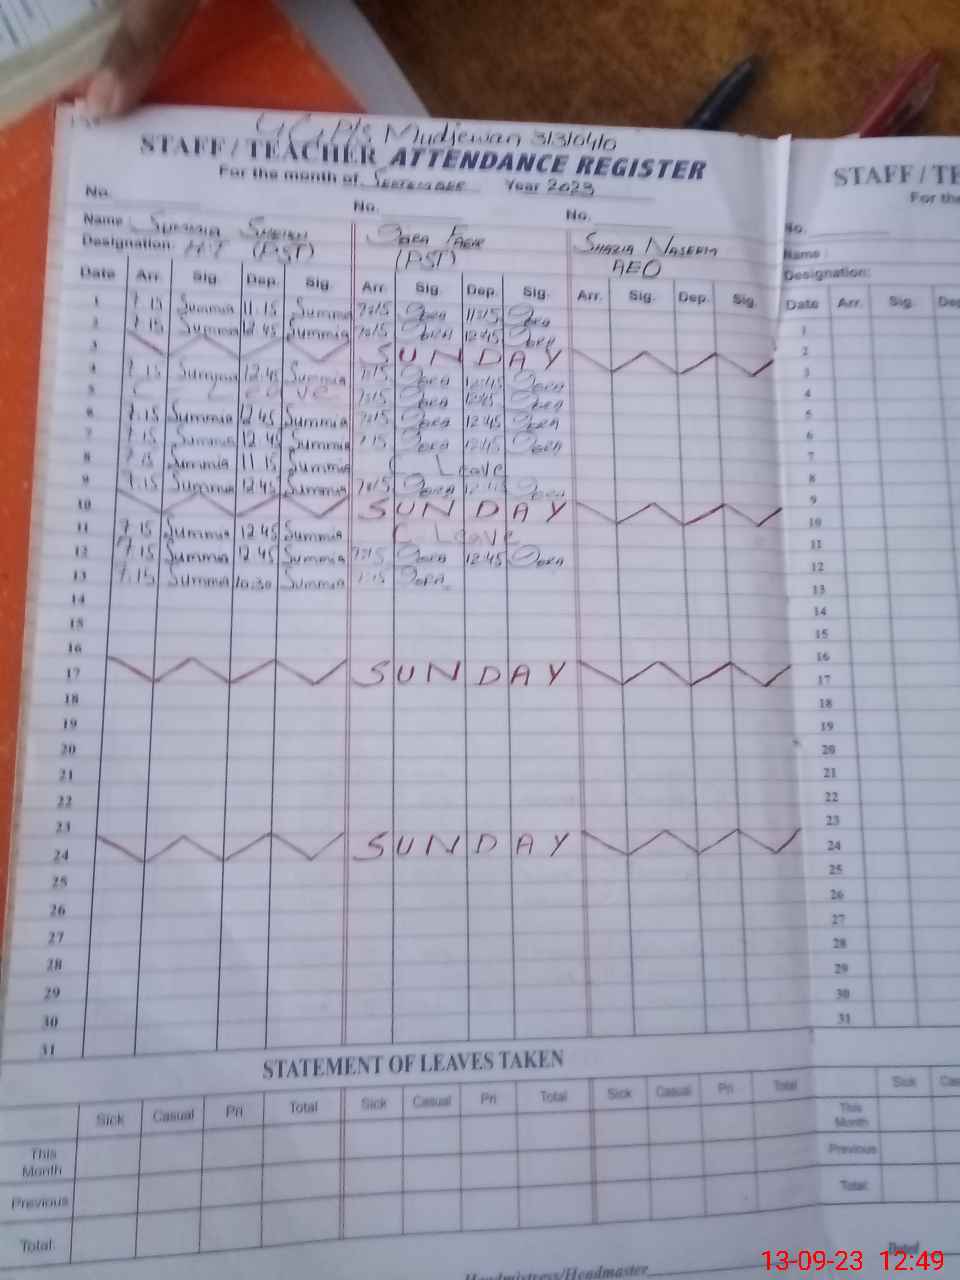 GGP/S Mudjewan 313/04/0
STAFF / TEACHER ATTENDANCE REGISTER
For the month of September Year 2023
No. No. No.
Name Summia Sheikh
Designation HT (PST) (PST)
Shazia Naseem
AEO
Date Arr. Sig. Dep. Sig. Arr. Sig. Dep. Sig. Arr. Sig. Dep. Sig.
1 7.15 Summia 11.15 Summia 7:15 11:15
2 7.15 Summia 12.45 Summia 7:15 12:45
3 SUNDAY
4 7.15 Summia 12.45 Summia 7:15 12:45
5 C Leave 7:15 12:45
6 7.15 Summia 12.45 Summia 7:15 12:45
7 7.15 Summia 12.45 Summia 7:15 12:45
8 7.15 Summia 11.15 Summia C Leave
9 7.15 Summia 12.45 Summia 7:15
10 SUNDAY
11 7.15 Summia 12.45 Summia C Leave
12 7.15 Summia 12.45 Summia 7:15 12:45
13 7.15 Summia 10:30 Summia 7:15
14
15
16
17 SUNDAY
18
19
20
21
22
23
24 SUNDAY
25
26
27
28
29
30
31
STATEMENT OF LEAVES TAKEN
Sick Casual Pri Total Sick Casual Pri Total Sick Casual Pri Total
This Month
Previous
Total
Headmistress/Headmaster
STAFF / TE
For the
No.
Name :
Designation:
Date Arr. Sig. De
1
2
3
4
5
6
7
8
9
10
11
12
13
14
15
16
17
18
19
20
21
22
23
24
25
26
27
28
29
30
31
Sick Cas
This Month
Previous
Total
13-09-23 12:49